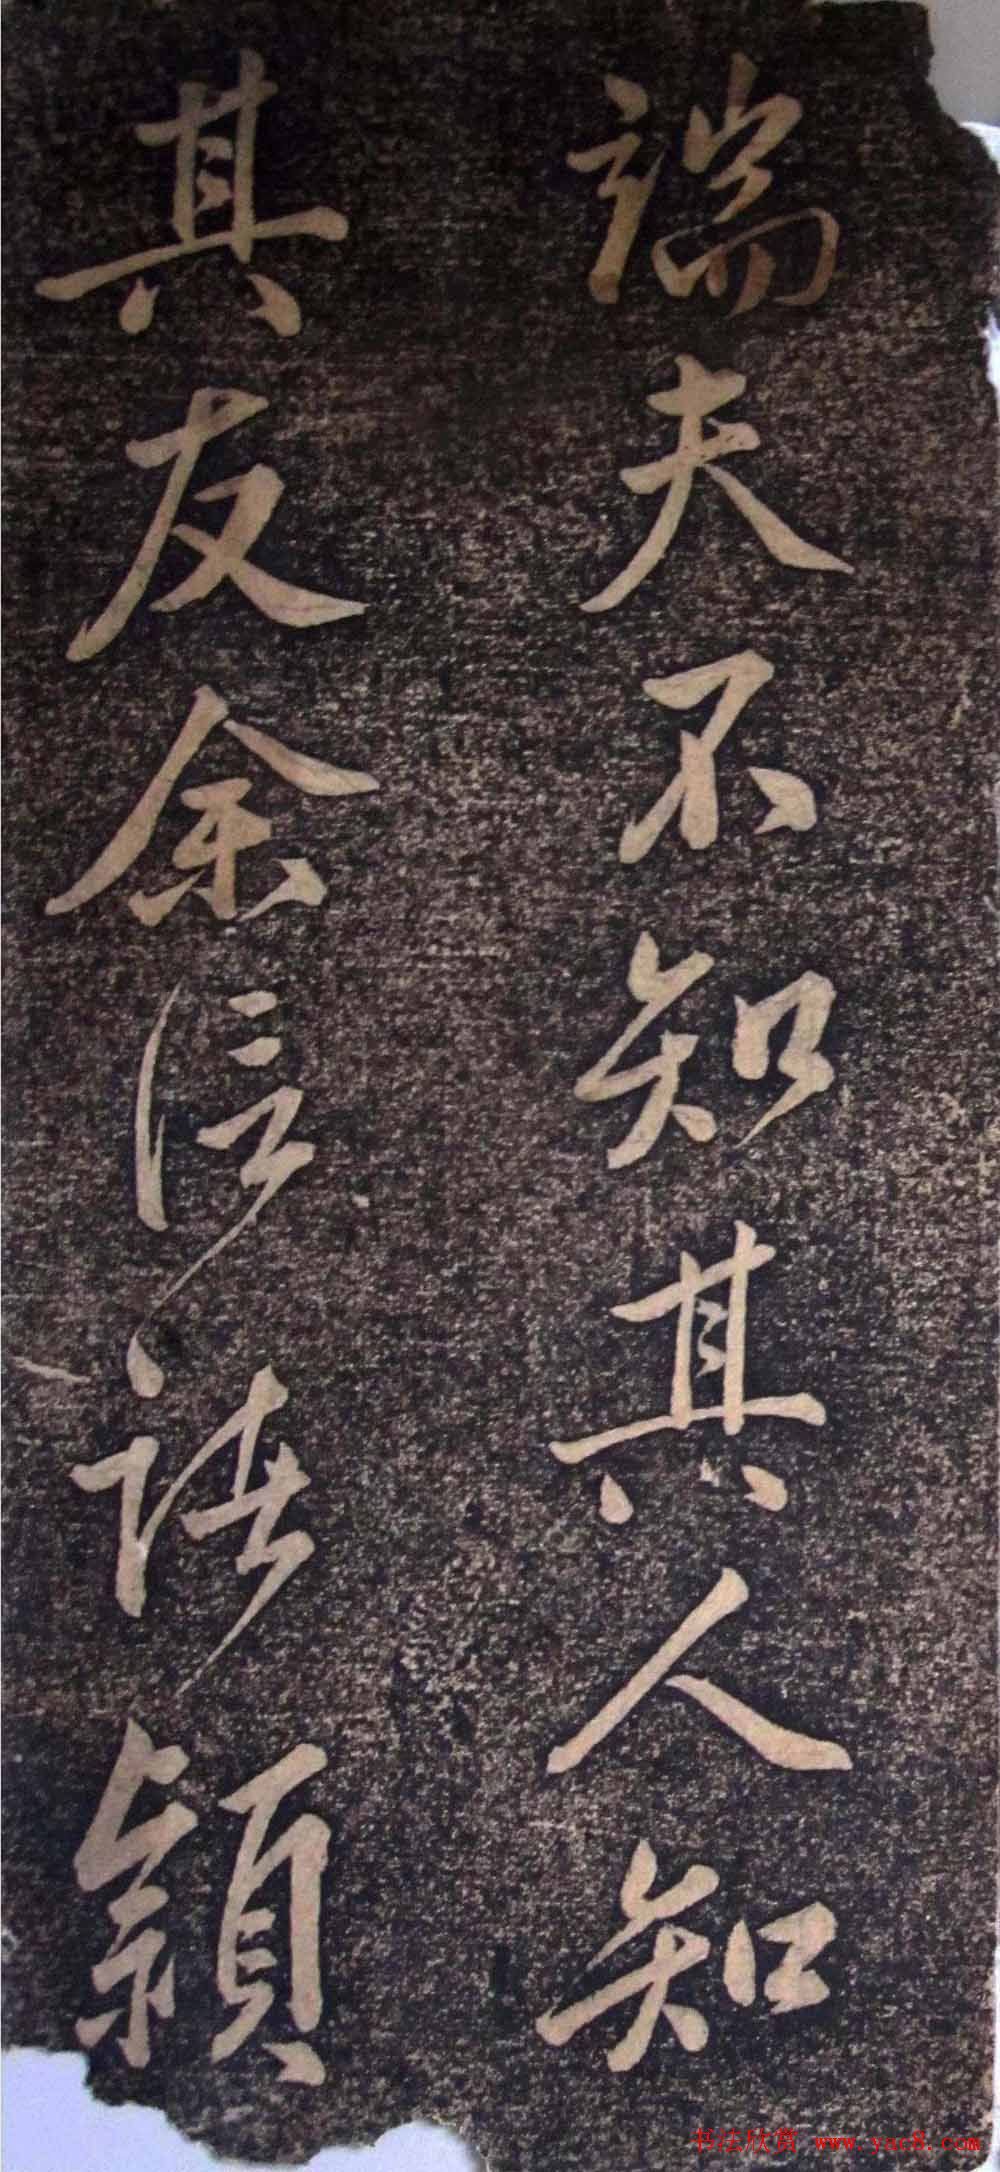 端夫不知其人知
其友余信诸颍
书法欣赏 www.yac8.com